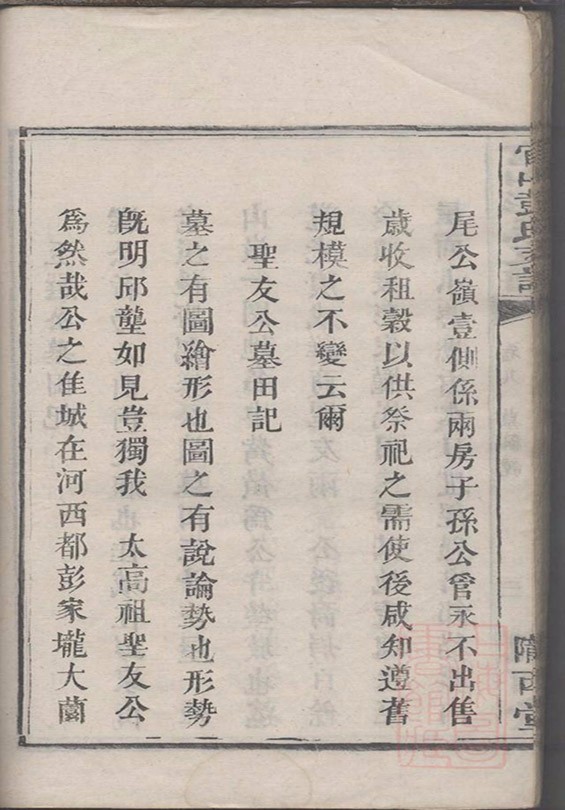 尾公嶺壹側係兩房子孫公管永不出售
歲收租穀以供祭祀之需使後咸知遵舊
規模之不變云爾
聖友公墓田記
墓之有圖繪形也圖之有說論勢也形勢
旣明邱壟如見豈獨我 太高祖聖友公
爲然哉公之隹城在河西都彭家壠大薗
彭氏支譜
隴西堂